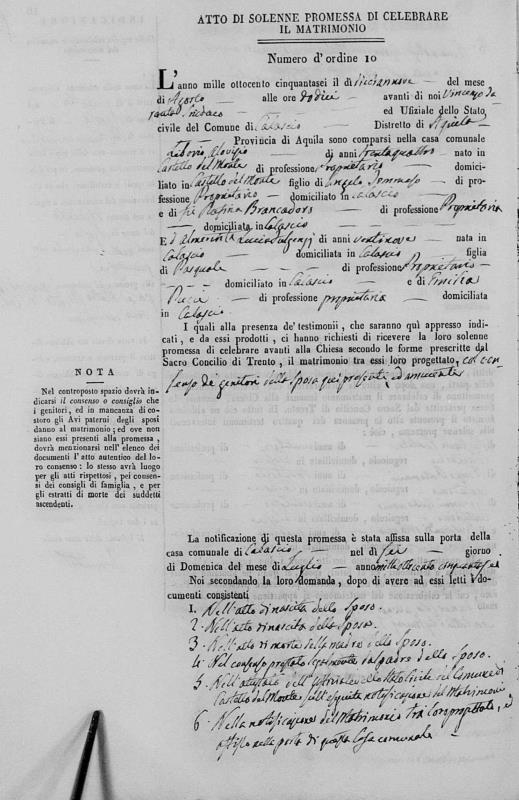 ATTO DI SOLENNE PROMESSA DI CELEBRARE
IL MATRIMONIO
Numero d' ordine 10
L'anno mille ottocento cinquantasei il dì diciannove del mese
di Agosto alle ore dodici avanti di noi Vincenzo
Sindaco ed Ufiziale dello Stato
civile del Comune di Calascio Distretto di Aquila
Provincia di Aquila sono comparsi nella casa comunale
Liborio Aloisio di anni trentaquattro nato in
Castello del Monte di professione Proprietario domici-
liato in Castello del Monte figlio di Angelo Tommaso di pro-
fessione Proprietario domiciliato in Calascio
e di fu Rosina di professione Proprietaria
domiciliata in Calascio
E d'Almerinda di anni ventinove nata in
Calascio domiciliata in Calascio figlia
di Pasquale di professione Proprietario
domiciliato in Calascio e di Emilia
di professione proprietaria domiciliata
in Calascio
I quali alla presenza de' testimonii, che saranno quì appresso indi-
cati, e da essi prodotti, ci hanno richiesti di ricevere la loro solenne
promessa di celebrare avanti alla Chiesa secondo le forme prescritte dal
Sacro Concilio di Trento, il matrimonio tra essi loro progettato, col con-
senso de' genitori della Sposa quì presente, ed annuente
NOTA
Nel controposto spazio dovrà in-
dicarsi il consenso o consiglio che
i genitori, ed in mancanza di co-
storo gli Avi paterni degli sposi
danno al matrimonio; ed ove non
siano essi presenti alla promessa,
dovrà menzionarsi nell'elenco dei
documenti l'atto autentico del lo-
ro consenso: lo stesso avrà luogo
per gli atti rispettosi, pei consen-
si dei consigli di famiglia, e per
gli estratti di morte dei suddetti
ascendenti.
La notificazione di questa promessa è stata affissa sulla porta della
casa comunale di Calascio nel dì sei giorno
di Domenica del mese di Luglio anno mille ottocento cinquantasei
Noi secondando la loro domanda, dopo di avere ad essi letti i do-
cumenti consistenti
1. Nell'atto di nascita dello Sposo.
2. Nell'atto di nascita della Sposa.
3. Nell'atto di morte della madre dello Sposo.
4. Nel consenso prestato legalmente dal padre dello Sposo.
5. Nell'attestato dell'Uffiziale dello Stato Civile del Comune di
Castello del Monte sull'eseguita notificazione del Matrimonio
6. Nella notificazione del Matrimonio tra loro progettato, e
affissa nella porta di questa Casa comunale